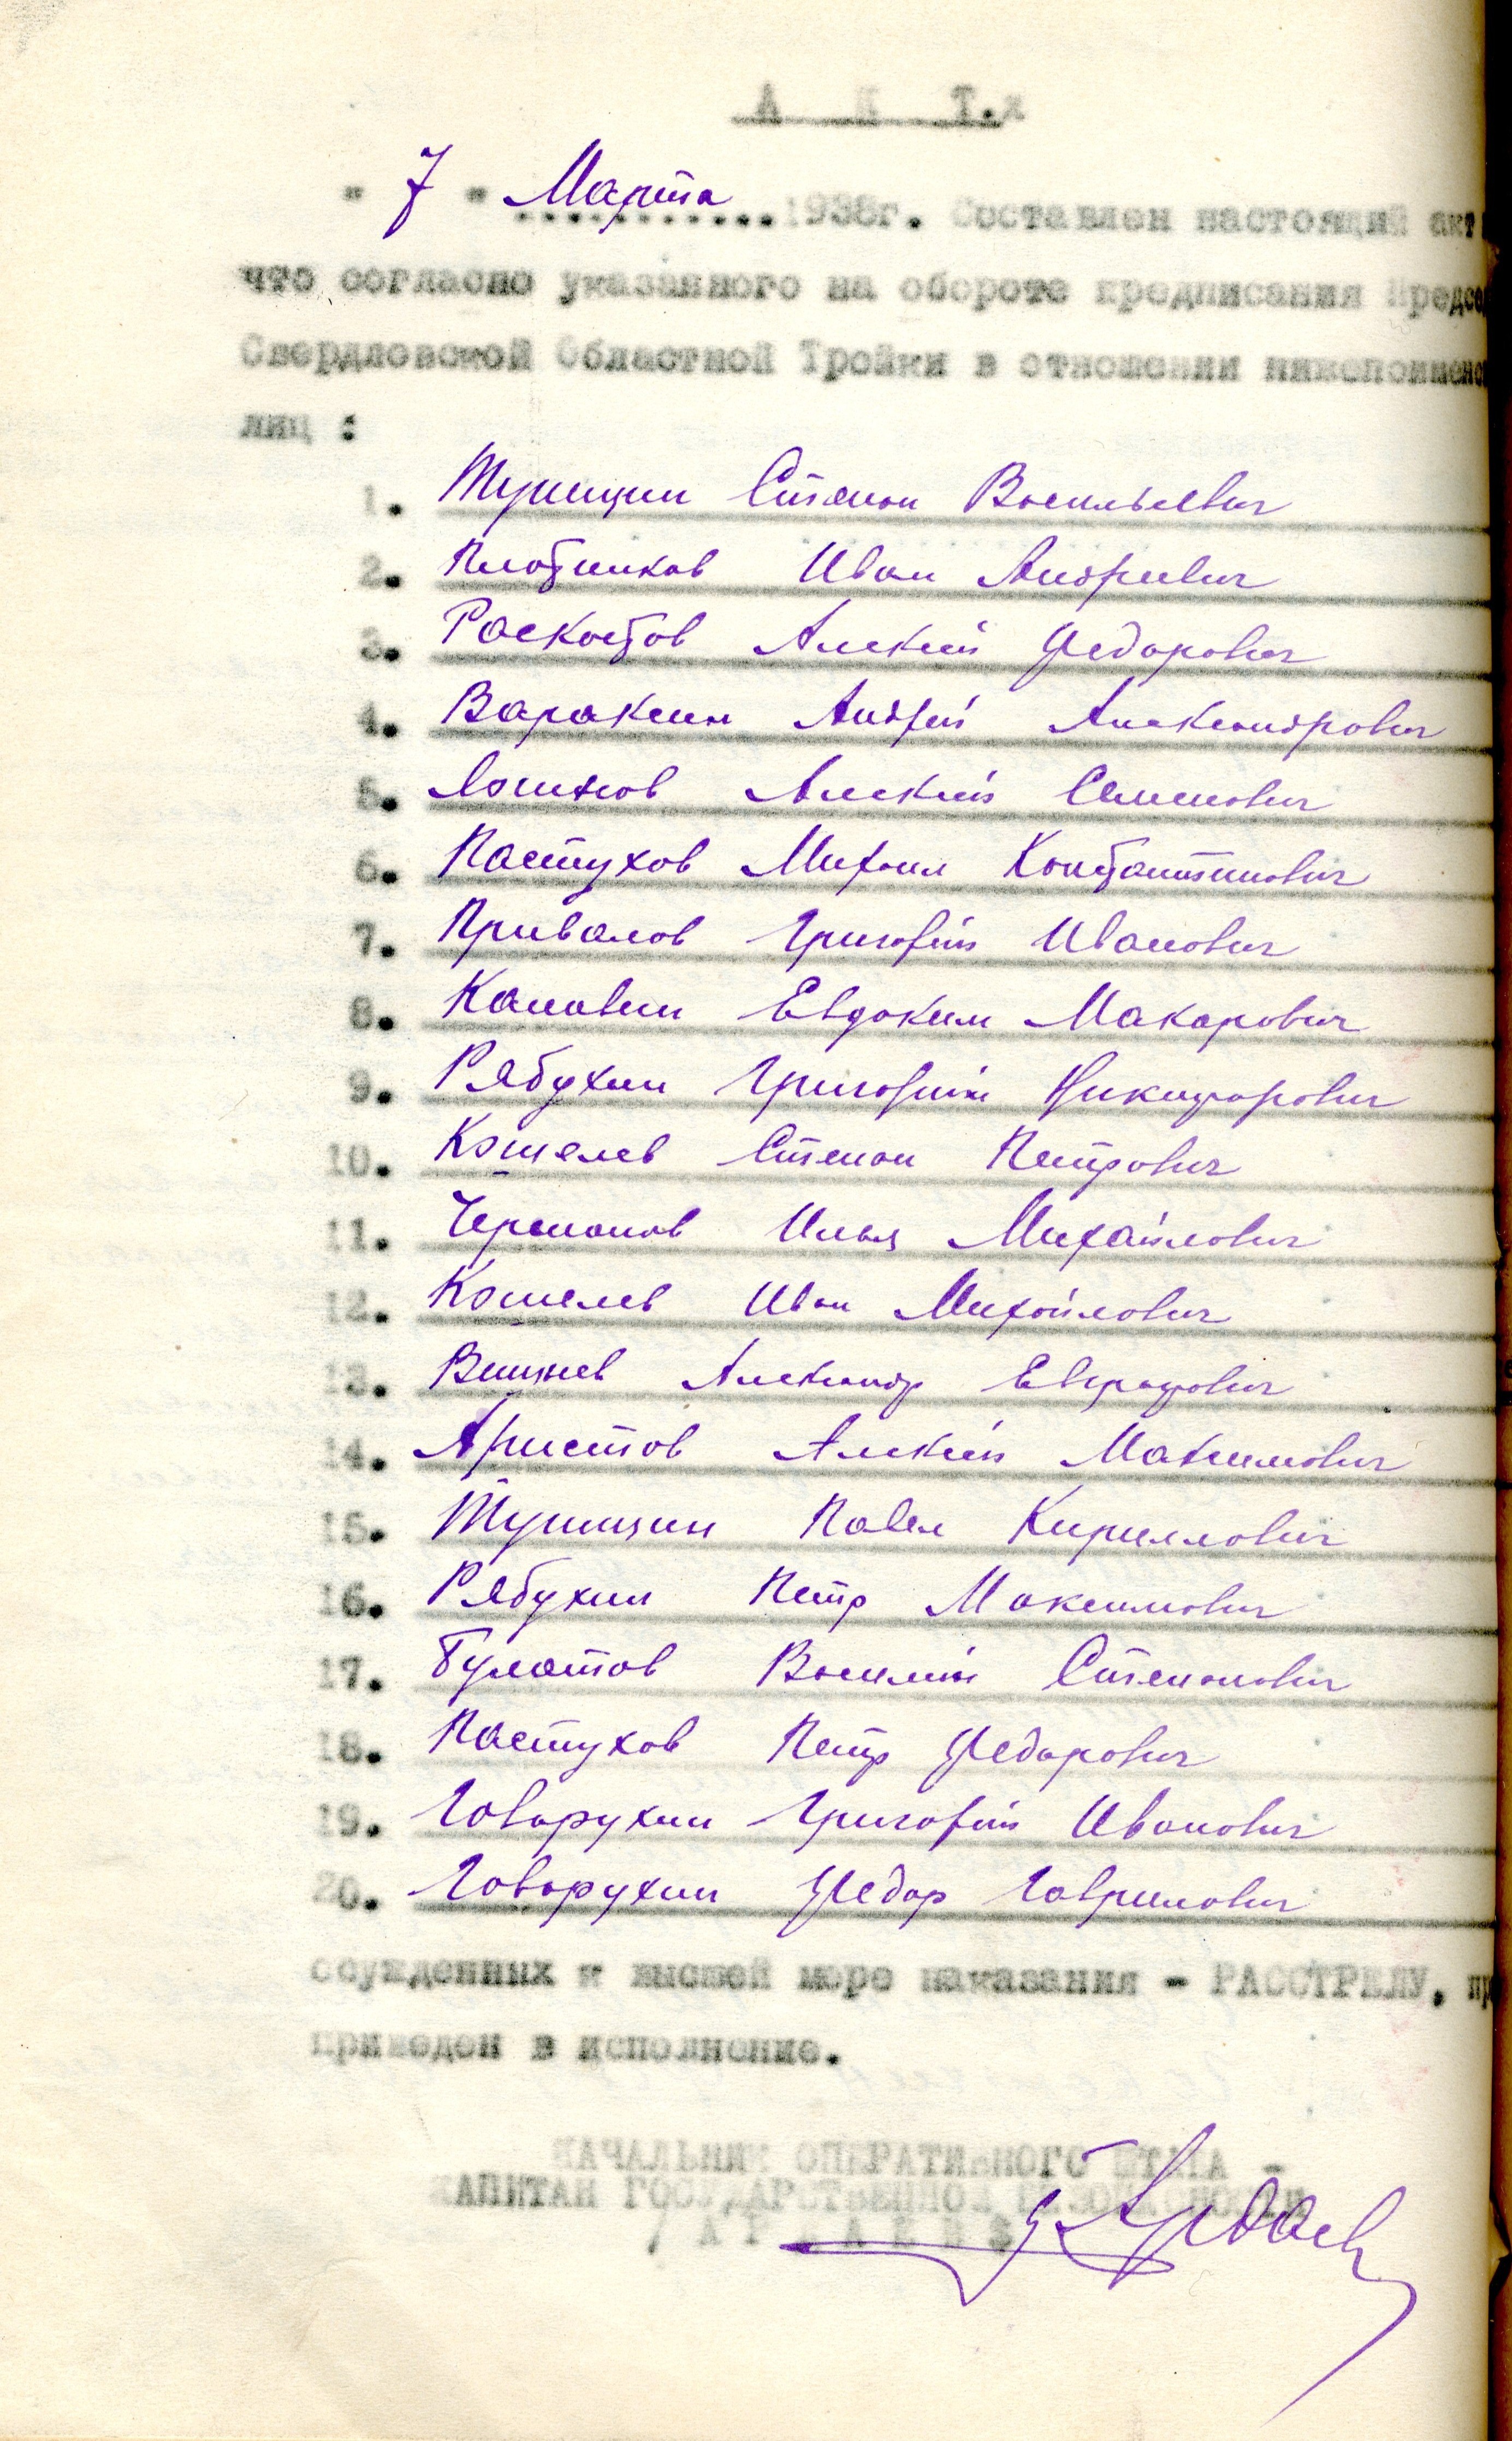 А К Т.
" 7 " Марта 1938г. Составлен настоящий акт
что согласно указанного на обороте предписания Предсе
Свердловской Областной Тройки в отношении нижепоимено
лиц :
1. Тупицин Степан Васильевич
2. Плотников Иван Андреевич
3. Раскостов Алексей Федорович
4. Варакин Андрей Александрович
5. Логинов Алексей Семенович
6. Пастухов Михаил Константинович
7. Привалов Григорий Иванович
8. Канавин Евдоким Макарович
9. Рябухин Григорий Никифорович
10. Кошелев Степан Петрович
11. Черепанов Илья Михайлович
12. Кошелев Иван Михайлович
13. Вишнев Александр Евграфович
14. Аристов Алексей Максимович
15. Тупицин Павел Кириллович
16. Рябухин Петр Максимович
17. Булатов Василий Степанович
18. Пастухов Петр Федорович
19. Говорухин Григорий Иванович
20. Говорухин Федор Гаврилович
осужденных к высшей мере наказания - РАССТРЕЛУ, пр
приведен в исполнение.
НАЧАЛЬНИК ОПЕРАТИВНОГО ШТАБА -
КАПИТАН ГОСУДАРСТВЕННОЙ БЕЗОПАСНОСТИ